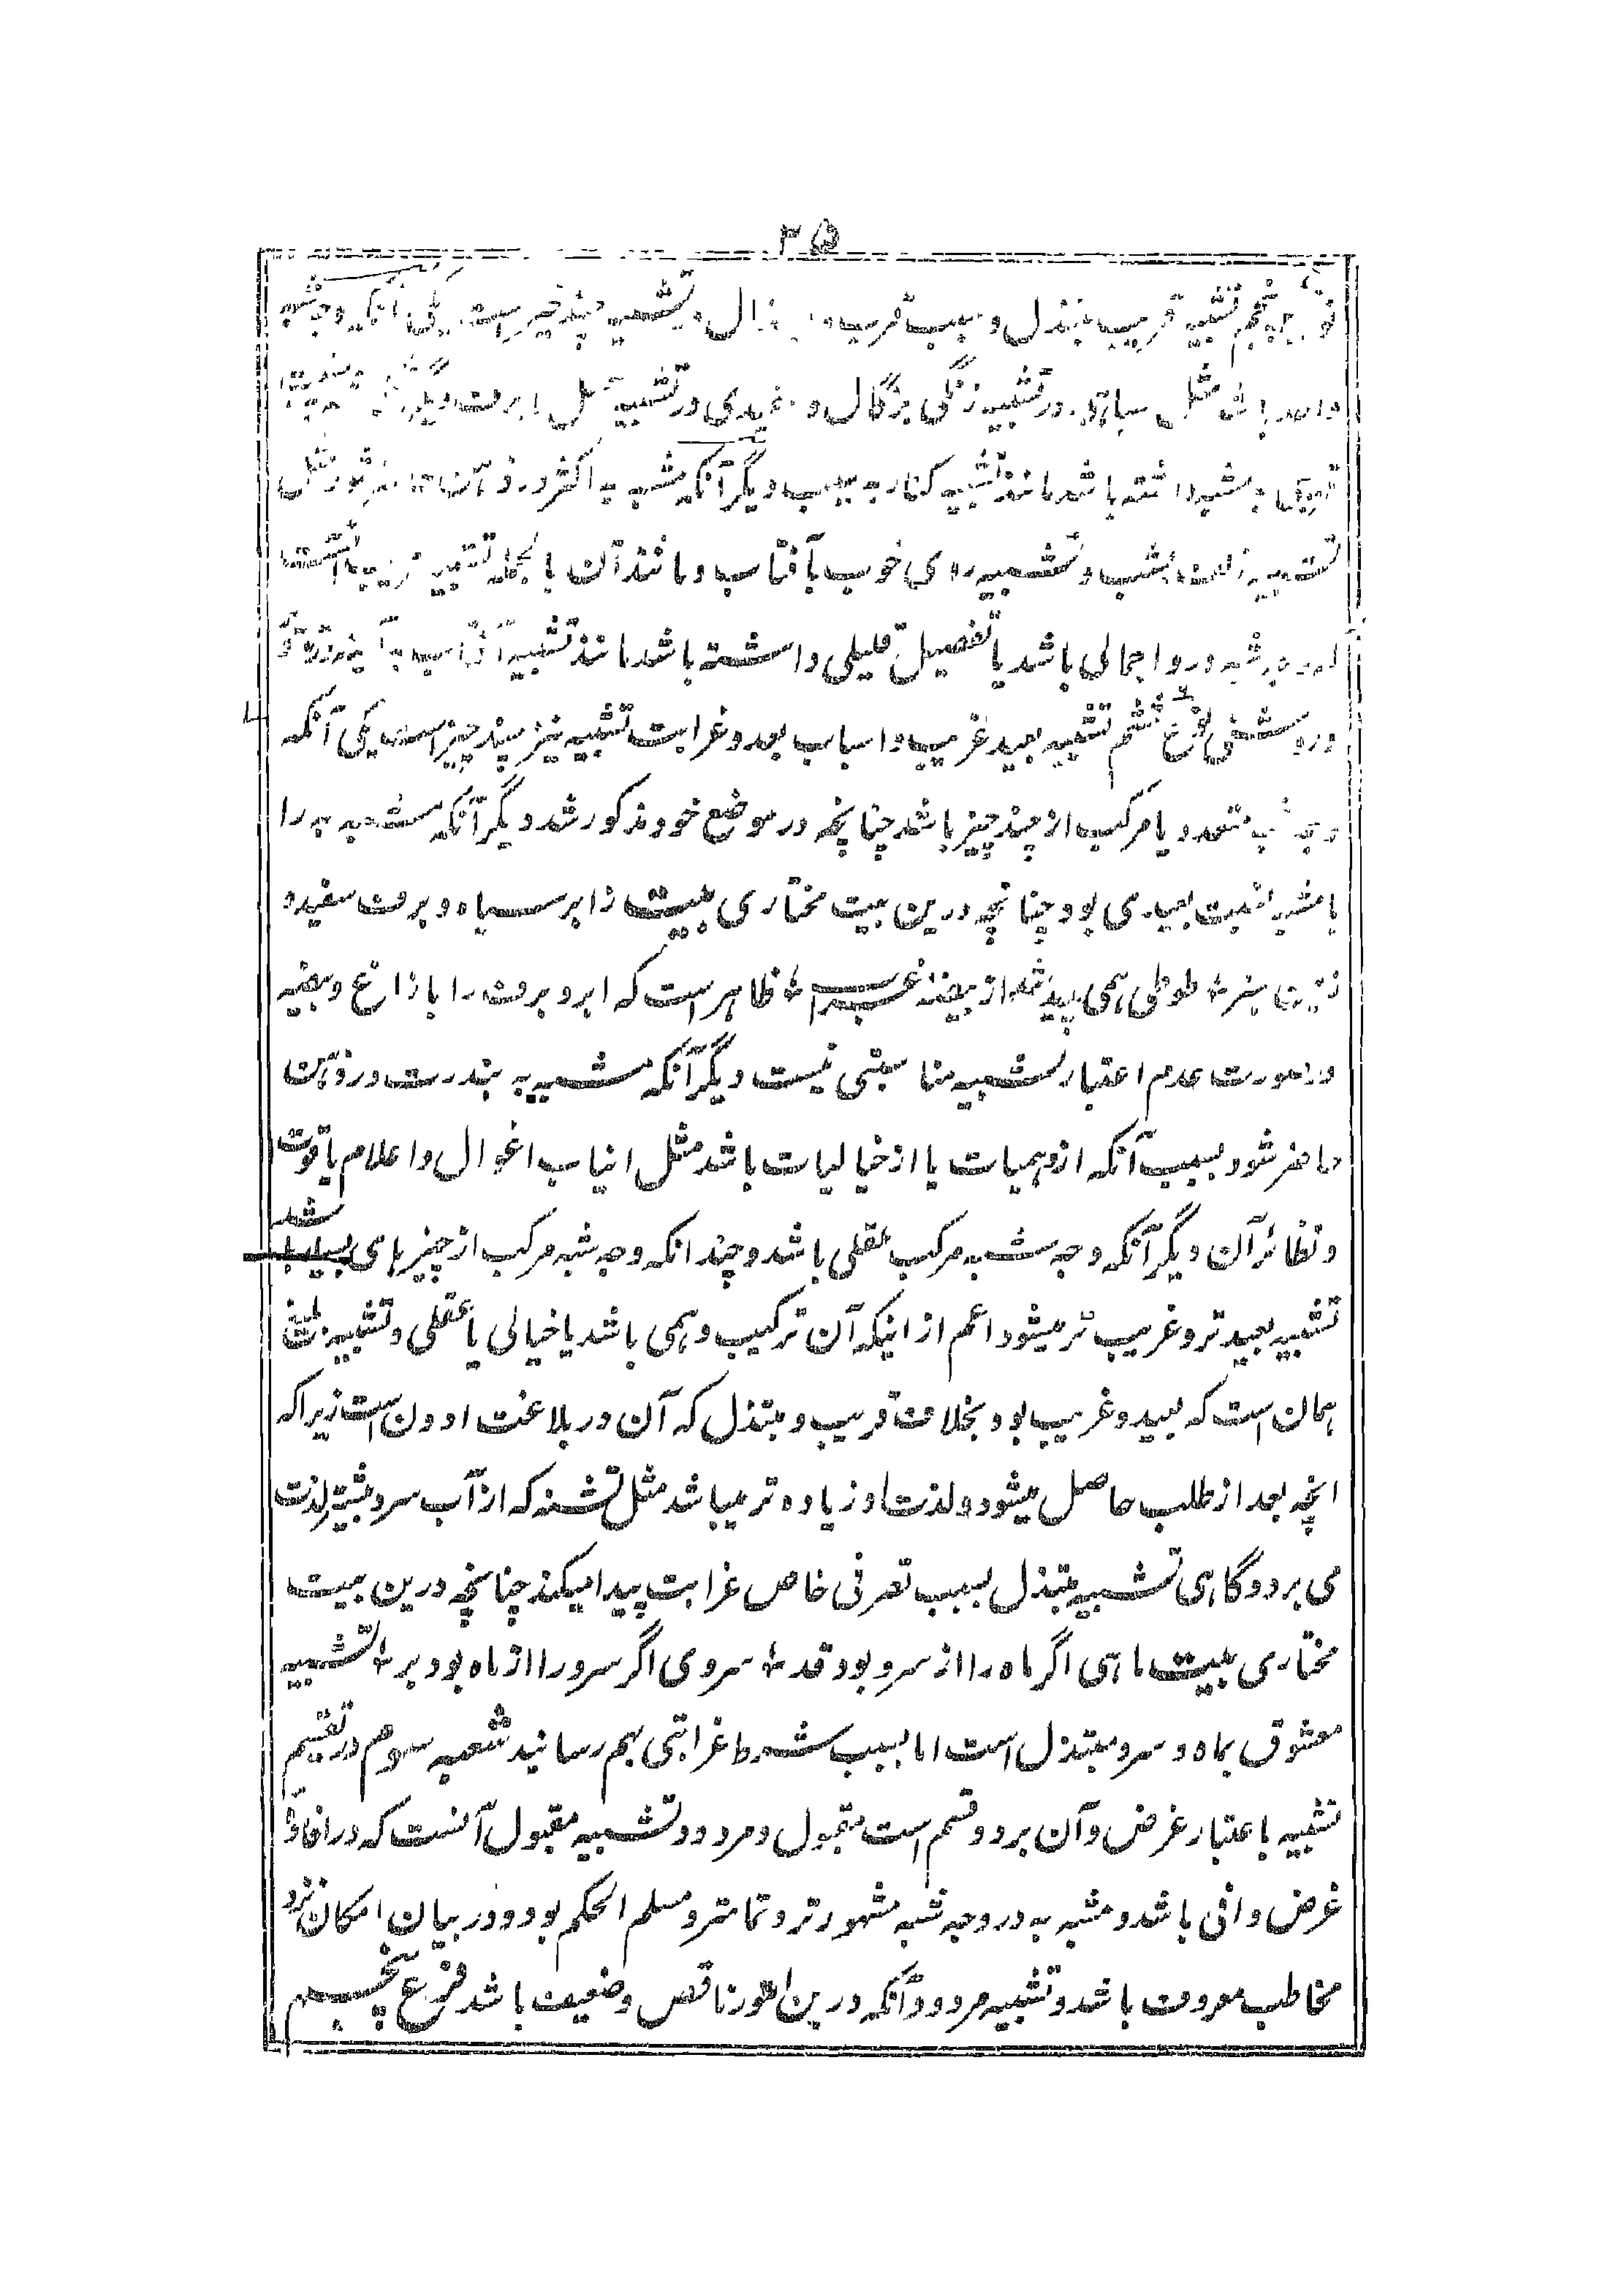 ۳۵
پنجم تشبیه قریب مبتذل و سبب قرب و تشبیه چند چیز است یکی آنکه وجه شبه
واحد باشد مثل سیاهی در تشبیه زنگی بزگال و در تشبیه برف دیگر
به مشبه داشته باشد مانند تشبیه کنار به سیب دیگر آنکه مشبه به اکثر در ذهن
تشبیه زلف بشب و تشبیه روی خوب بآفتاب و مانند آن بالجمله تشبیه
وجه شبه درو اجمالی باشد یا تفصیل قلیلی داشته باشد مانند تشبیه آفتاب به آینه
و روشنی نوع ششم تشبیه بعید غریب و اسباب بعد و غرابت تشبیه نیز چند چیز است یکی آنکه
وجه شبه متعدد یا مرکب از چند چیز باشد چنانچه در موضع خود مذکور شد دیگر آنکه مشبه به را
با مشبه نسبت بعیدی بود چنانچه درین بیت مختاری بیت ز ابر سیاه و برف سفید و
سبز ؞ طوطی همی پدید شد از بیضهٔ غراب ؞ ظاهر است که ابر و برف را با زاغ و بیضه
در صورت عدم اعتبار تشبیه مناسبتی نیست دیگر آنکه مشبه به بندرت در ذهن
حاضر شود بسبب آنکه از وهمیات یا از خیالیات باشد مثل انیاب اغوال و اعلام یاقوت
و نظائر آن دیگر آنکه وجه شبه مرکب عقلی باشد و چندانکه وجه شبه مرکب از چیزهای بسیار باشد
تشبیه بعیدتر و غریب تر میشود اعم از اینکه آن ترکیب وهمی باشد یا خیالی یا عقلی و تشبیه بلیغ
همان است که بعید و غریب بود بخلاف قریب و مبتذل که آن در بلاغت ادون است زیرا که
انچه بعد از طلب حاصل میشود و لذت او زیاده تر میباشد مثل تشنه که از آب سرد بیشتر لذت
می برد و گاهی تشبیه مبتذل بسبب تصرفی خاص غرابت پیدا میکند چنانچه درین بیت
مختاری بیت ماهی اگر ماه را از سرو بود قد ؞ سروی اگر سرو را از ماه بود بر ؞ تشبیه
معشوق بماه و سرو مبتذل است اما بسبب شرط غرابتی بهم رسانید شعبه سوم در تقسیم
تشبیه باعتبار غرض و آن بر دو قسم است مقبول و مردود و تشبیه مقبول آنست که در افادهٔ
غرض وافی باشد و مشبه به در وجه شبه مشهورتر و تمامتر و مسلم الحکم بود و در بیان امکان نزد
مخاطب معروف باشد و تشبیه مردود آنکه درین امور ناقص و ضعیف باشد فرع پنجم